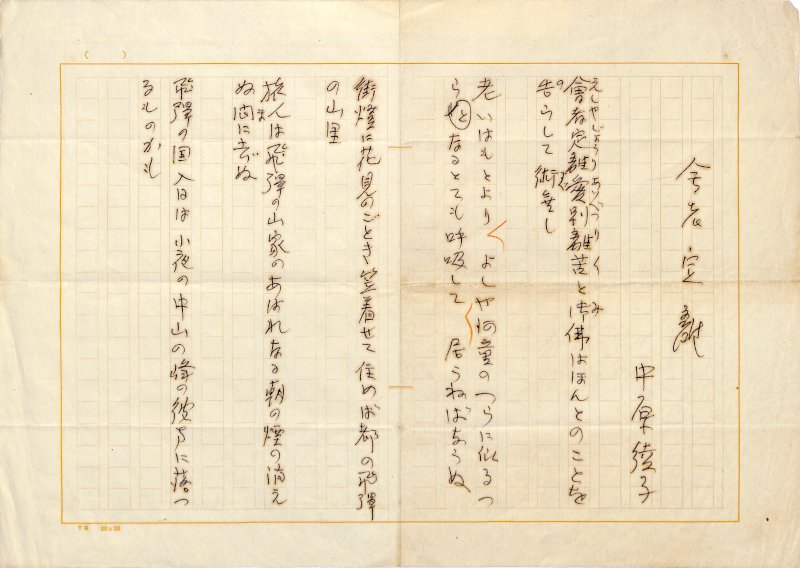 会者定離
中原綾子
えしゃじょうりあいべつりく み
會者定離愛別離苦と御佛はほんとのことを
の すべ
告らして術無し
老いはもとより よしや河童のつらに似るつ
らとなるとても呼吸して 居らねばならぬ
街燈に花見のごとき笠着せて住めば都の飛驒
の山里
旅人は飛驒の山家のあはれなる朝の煙の消え
ま
ぬ間に去ぬ
飛驒の国入日は小夜の中山の峰の彼方に落つ
るものかも
( )
下書 20×20